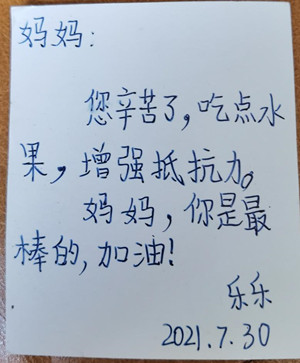 妈妈:
您辛苦了,吃点水
果,增强抵抗力。
妈妈,你是最
棒的,加油!
乐乐
2021.7.30